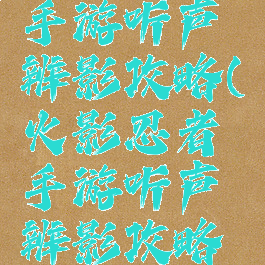 手游听声
辨影攻略(
火影忍者
手游听声
辨影攻略